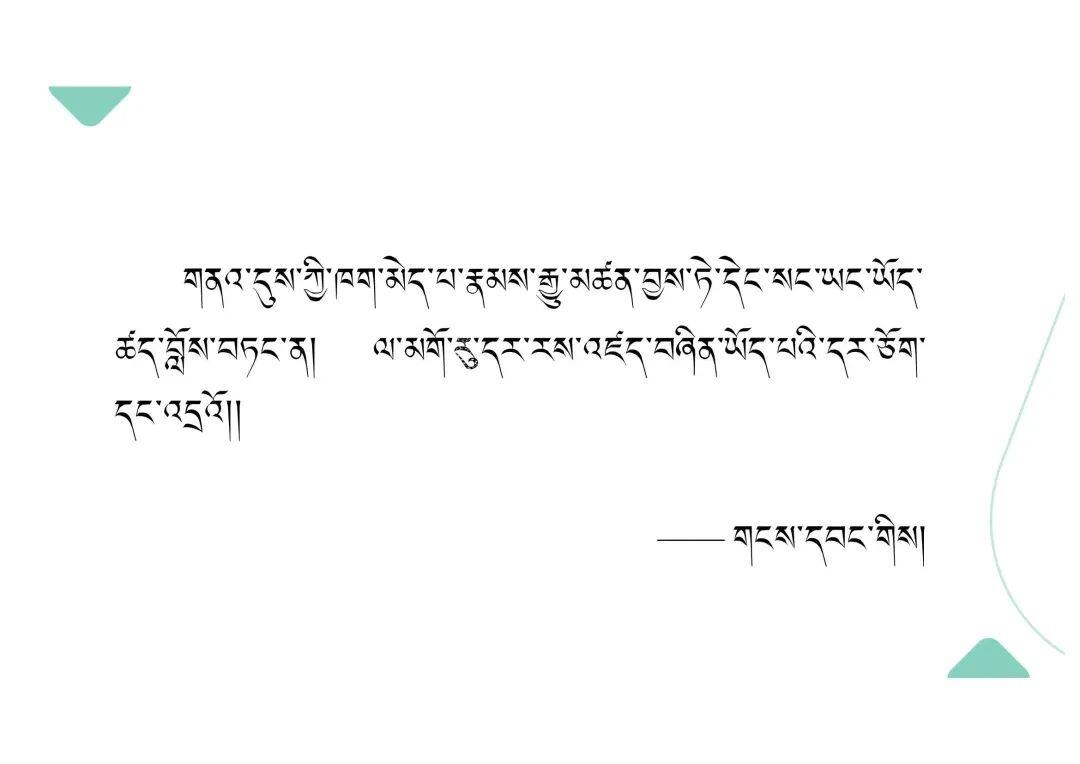 གནའ་དུས་ཀྱི་ཁག་མེད་པ་རྣམས་རྒྱུ་མཚན་བྱས་ཏེ་དེང་སང་ཡང་ཡོད་
ཚད་བློས་བཏང་ན། ལ་མགོ་རུ་དར་རས་འཛད་བཞིན་ཡོད་པའི་དར་ཅོག་
དང་འདྲའོ།།
—— གངས་དབང་གིས།